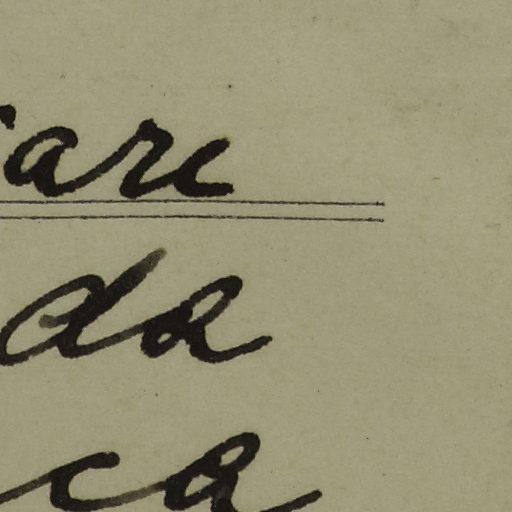 are
da
ca